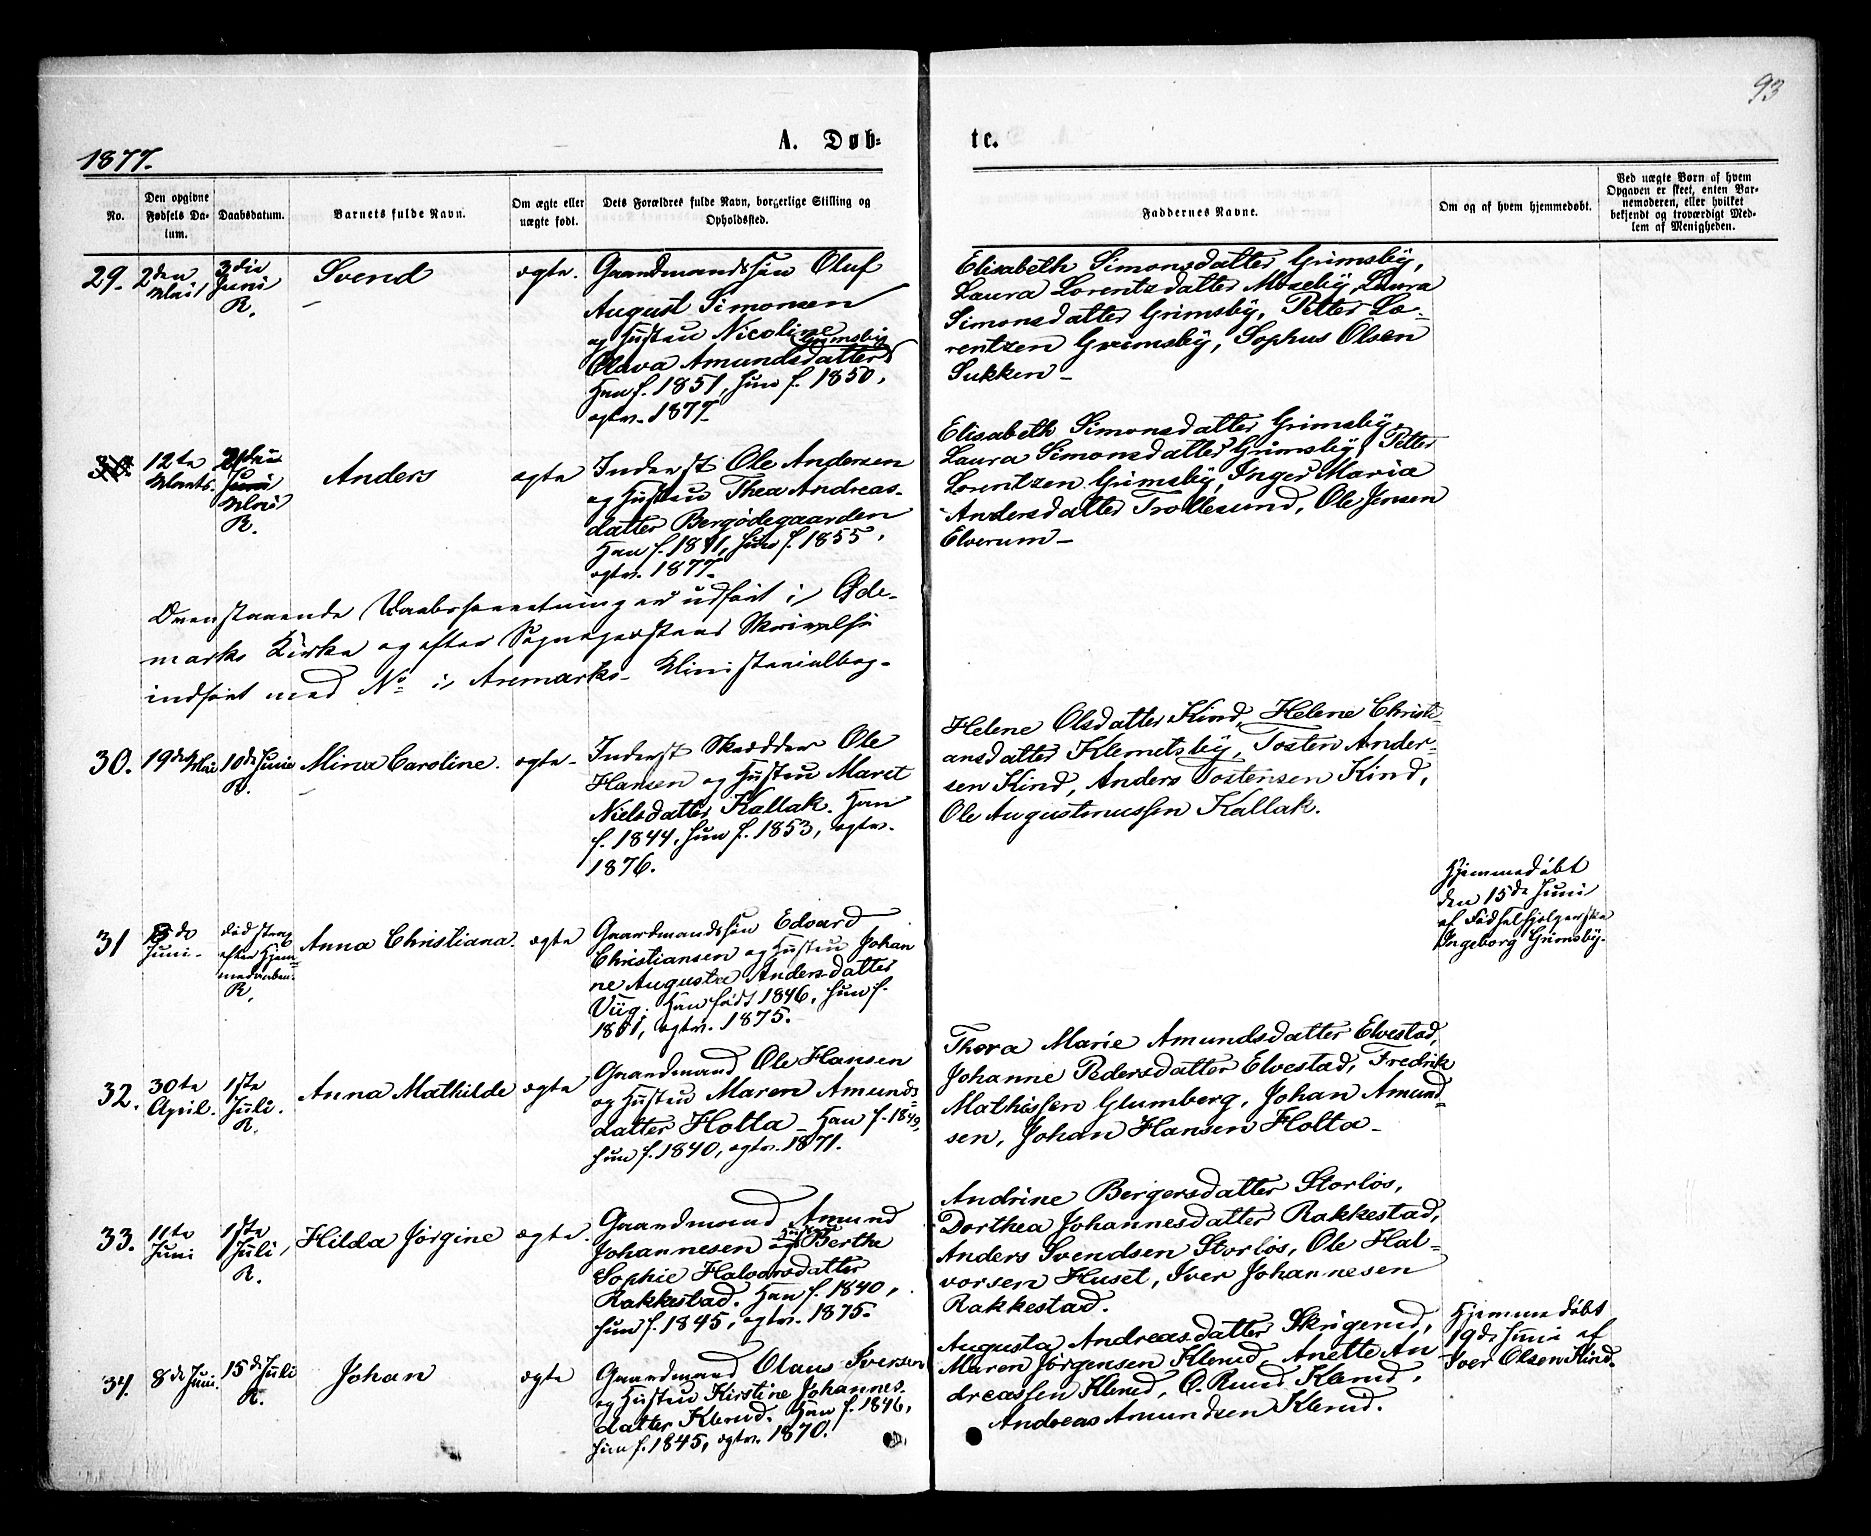 93
A. Døb-
te.
1877.
No.
Den opgivne
Fødsels Da-
tum.
Daabsdatum.
Barnets fulde Navn.
Om ægte eller
uægte født.
Dets Forældres fulde Navn, borgerlige Stilling og
Opholdssted.
Faddernes Navne.
Om og af hvem hjemmedøbt.
Ved uægte Børn af hvem
Opgaven er skeet, enten Bar-
nemoderen, eller hvilket
bekjendt og troværdigt Med-
lem af Menigheden.
29.
2den
Mai
3die
Juni
R.
Svend
ægte.
Gaardmandssøn Oluf
August Simonsen
og Hustru Nicoline
Grimsby
Olava Amundsdatter
Han f. 1851, hun f. 1850,
ægtv. 1877.
Elisabeth Simonsdatter Grimsby,
Laura Lorentzdatter Moseby, Laura
Simonsdatter Grimsby, Petter Lo-
rentzen Grimsby, Sophus Olsen
Sukken -
30.
12te
Marts.
Juni
Mai
R.
Anders
ægte
Inderst Ole Andersen
og Hustru Thea Andreas-
datter Bergødegaarden
Han f. 1851, hun f. 1855,
ægtv. 1877.
Elisabeth Simonsdatter Grimsby,
Laura Simonsdatter Grimsby, Petter
Lorentzen Grimsby, Inger Maria
Andersdatter Trollesund, Ole Jensen
Elverum -
Ovenstaaende Daabsforretning er udført i Øde-
marks Kirke og efter Sogneprestens Skrivelse
indført med No i Aremarks Ministerialbog.
30.
19de Mai
10de Juni
R.
Mina Caroline.
ægte -
Inderst Skrædder Ole
Hansen og Hustru Maret
Nielsdatter Kallak. Han
f. 1844, hun f. 1853, ægtv.
1876.
Helene Olsdatter Kind, Helene Christi-
ansdatter Klemetsby, Tosten Ander-
sen Kind, Anders Tostensen Kind,
Ole Augustinussen Kallak.
31
Juni.
død strax
efter Hjem-
medaaben.
R.
Anna Christiana.
ægte
Gaardmandssøn Edvard
Christiansen og Hustru Johan
ne Augusta Andersdatter
Viig. Han født 1846, hun f.
1851, ægtv. 1875.
Hjemmedøbt
den 15de Juni
af Fødselshjelpersken
Ingeborg Grimsby.
32.
30te
April.
1ste
Juli.
R.
Anna Mathilde
ægte
Gaardmand Ole Hansen
og Hustru Maren Amunds-
datter Holta - Han f. 1849,
hun f. 1840, ægtv. 1871.
Thora Marie Amundsdatter Elvestad,
Johanne Pedersdatter Elvestad, Fredrik
Mathissen Glumberg, Johan Amund-
sen, Johan Hansen Holta -
33.
11te
Juni
1ste
Juli,
R.
Hilda Jørgine
ægte.
Gaardmand Amund
Johannesen og Hustru Berthe
Sophie Halvorsdatter
Rakkestad. Han f. 1840,
hun f. 1845, ægtv. 1875.
Andrine Bergersdatter Storløs,
Dorthea Johannesdatter Rakkestad,
Anders Svendsen Storløs, Ole Hal-
vorsen Huset, Iver Johannesen
Rakkestad.
34.
8de Juni.
15de Juli
R.
Johan
ægte
Gaardmand Olaus Iversen
og Hustru Kirstine Johannes-
datter Klerud. Han f. 1846,
hun f. 1845, ægtv. 1870.
Augusta Andreasdatter Skrigerud,
Maren Jørgensen Klerud, Anette An
dreassen Klerud, O. Ruud Klerud,
Andreas Amundsen Klerud.
Hjemmedøbt
19de Juni af
Iver Olsen Kind.